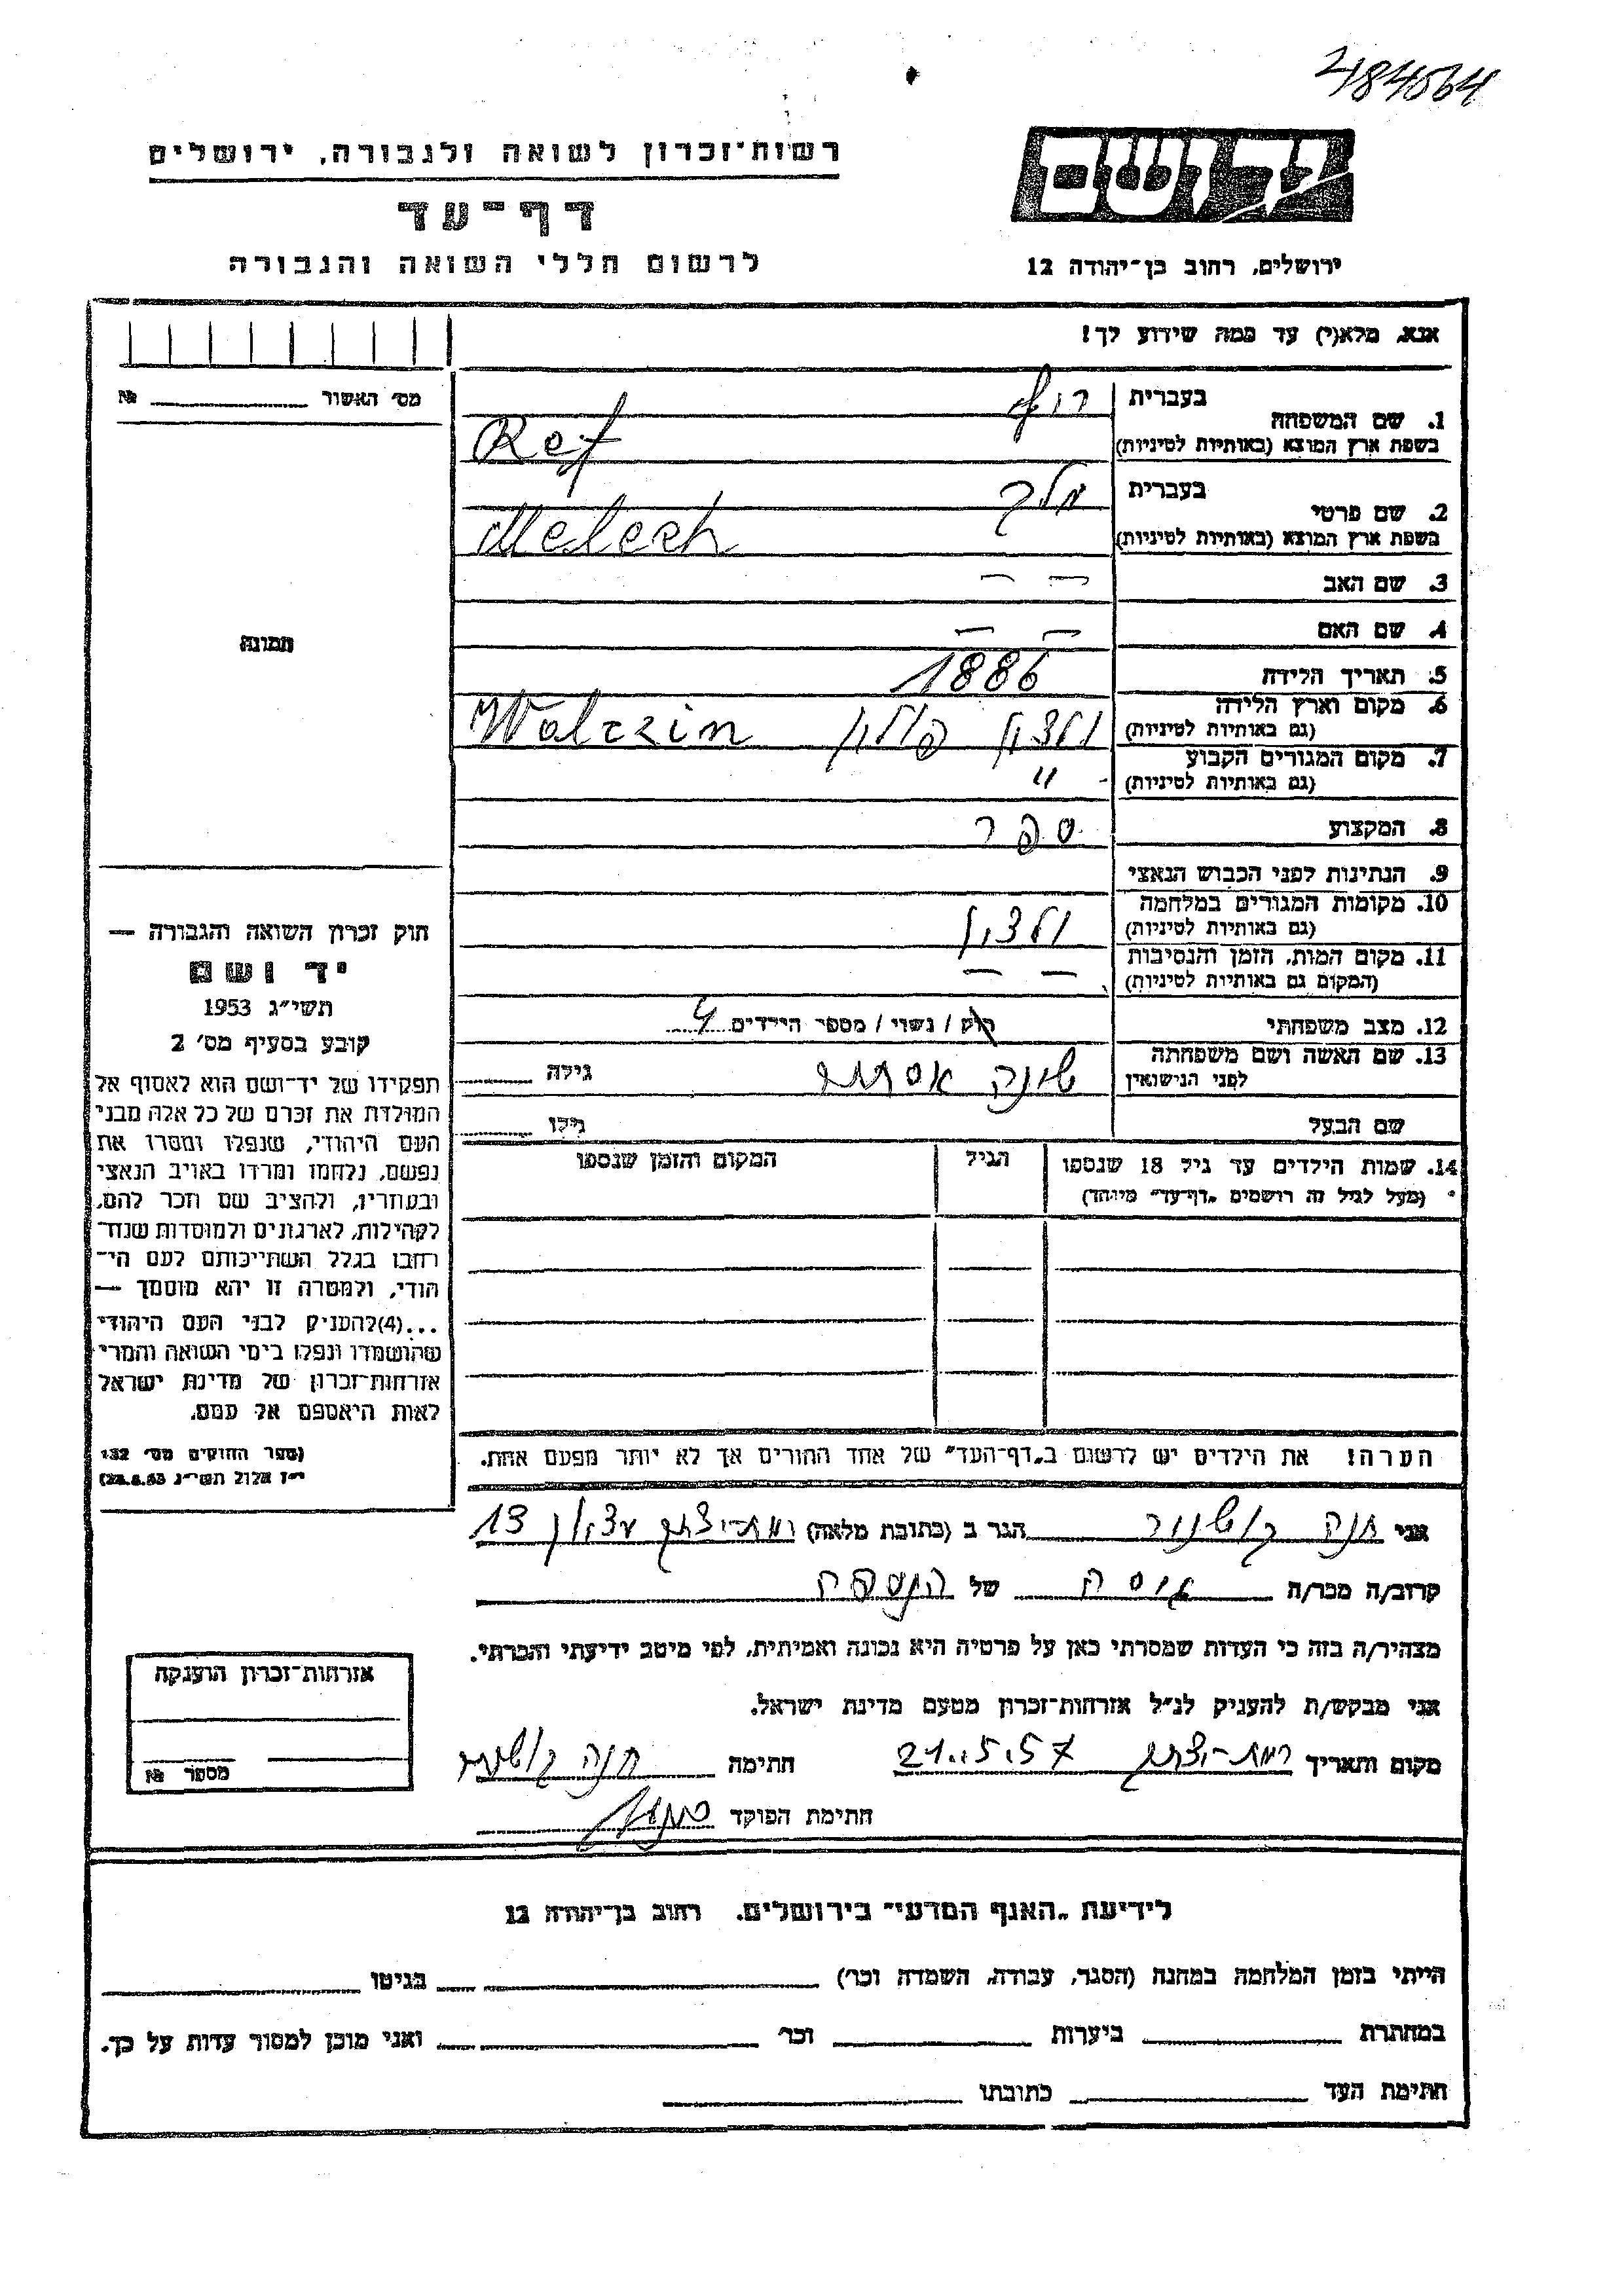 2184564
רשות־זכרון לשואה ולגבורה, ירושלים
יד ושם
דף־עד
לרשום חללי השואה והגבורה
ירושלים, רחוב בן־יהודה 12
אנא, מלא(י) עד כמה שידוע לך!
מס׳ האשור № 
1. שם המשפחה
בעברית
בשפת ארץ המוצא (באותיות לטיניות) Ref
2. שם פרטי
בעברית מלך
בשפת ארץ המוצא (באותיות לטיניות) Melech
3. שם האב — —
4. שם האם — —
5. תאריך הלידה 1886
6. מקום וארץ הלידה
(גם באותיות לטיניות) ולצין פולין Walczin
7. מקום המגורים הקבוע
(גם באותיות לטיניות) "
8. המקצוע ספר
9. הנתינות לפני הכבוש הנאצי
10. מקומות המגורים במלחמה
(גם באותיות לטיניות) ולצין
11. מקום המות, הזמן והנסיבות
(המקום גם באותיות לטיניות) — —
12. מצב משפחתי רוק / נשוי / מספר הילדים 4
13. שם האשה ושם משפחתה
לפני הנישואין גילה
שם הבעל גילו
14. שמות הילדים עד גיל 18 שנספו הגיל המקום והזמן שנספו
(מעל לגיל זה רושמים „דף־עד״ מיוחד)
תמונה
חוק זכרון השואה והגבורה —
יד ושם
תשי״ג 1953
קובע בסעיף מס׳ 2
תפקידו של יד־ושם הוא לאסוף אל
המולדת את זכרם של כל אלה מבני
העם היהודי, שנפלו ומסרו את
נפשם, נלחמו ומרדו באויב הנאצי
ובעוזריו, ולהציב שם וזכר להם,
לקהילות, לארגונים ולמוסדות שנח־
רבו בגלל השתייכותם לעם הי־
הודי, ולמטרה זו יהא מוסמך —
...(4)להעניק לבני העם היהודי
שהושמדו ונפלו בימי השואה והמרי
אזרחות־זכרון של מדינת ישראל
לאות היאספם אל עמם.
(ספר החוקים מס׳ 132
י״ז אלול תשי״ג 28.8.53)
הערה! את הילדים יש לרשום ב„דף־העד״ של אחד ההורים אך לא יותר מפעם אחת.
אני חנה הגר ב (כתובת מלאה) 13
קרוב/ה מכר/ה של
מצהיר/ה בזה כי העדות שמסרתי כאן על פרטיה היא נכונה ואמיתית, לפי מיטב ידיעתי והכרתי.
אני מבקש/ת להעניק לנ״ל אזרחות־זכרון מטעם מדינת ישראל.
מקום ותאריך 21.5.57 חתימה חנה
חתימת הפוקד
אזרחות־זכרון הוענקה
מספר №
לידיעת „האגף המדעי״ בירושלים. רחוב בן־יהודה 12
הייתי בזמן המלחמה במחנה (הסגר, עבודה, השמדה וכר׳) בגיטו
במחתרת ביערות וכר׳ ואני מוכן למסור עדות על כך.
חתימת העד כתובתו